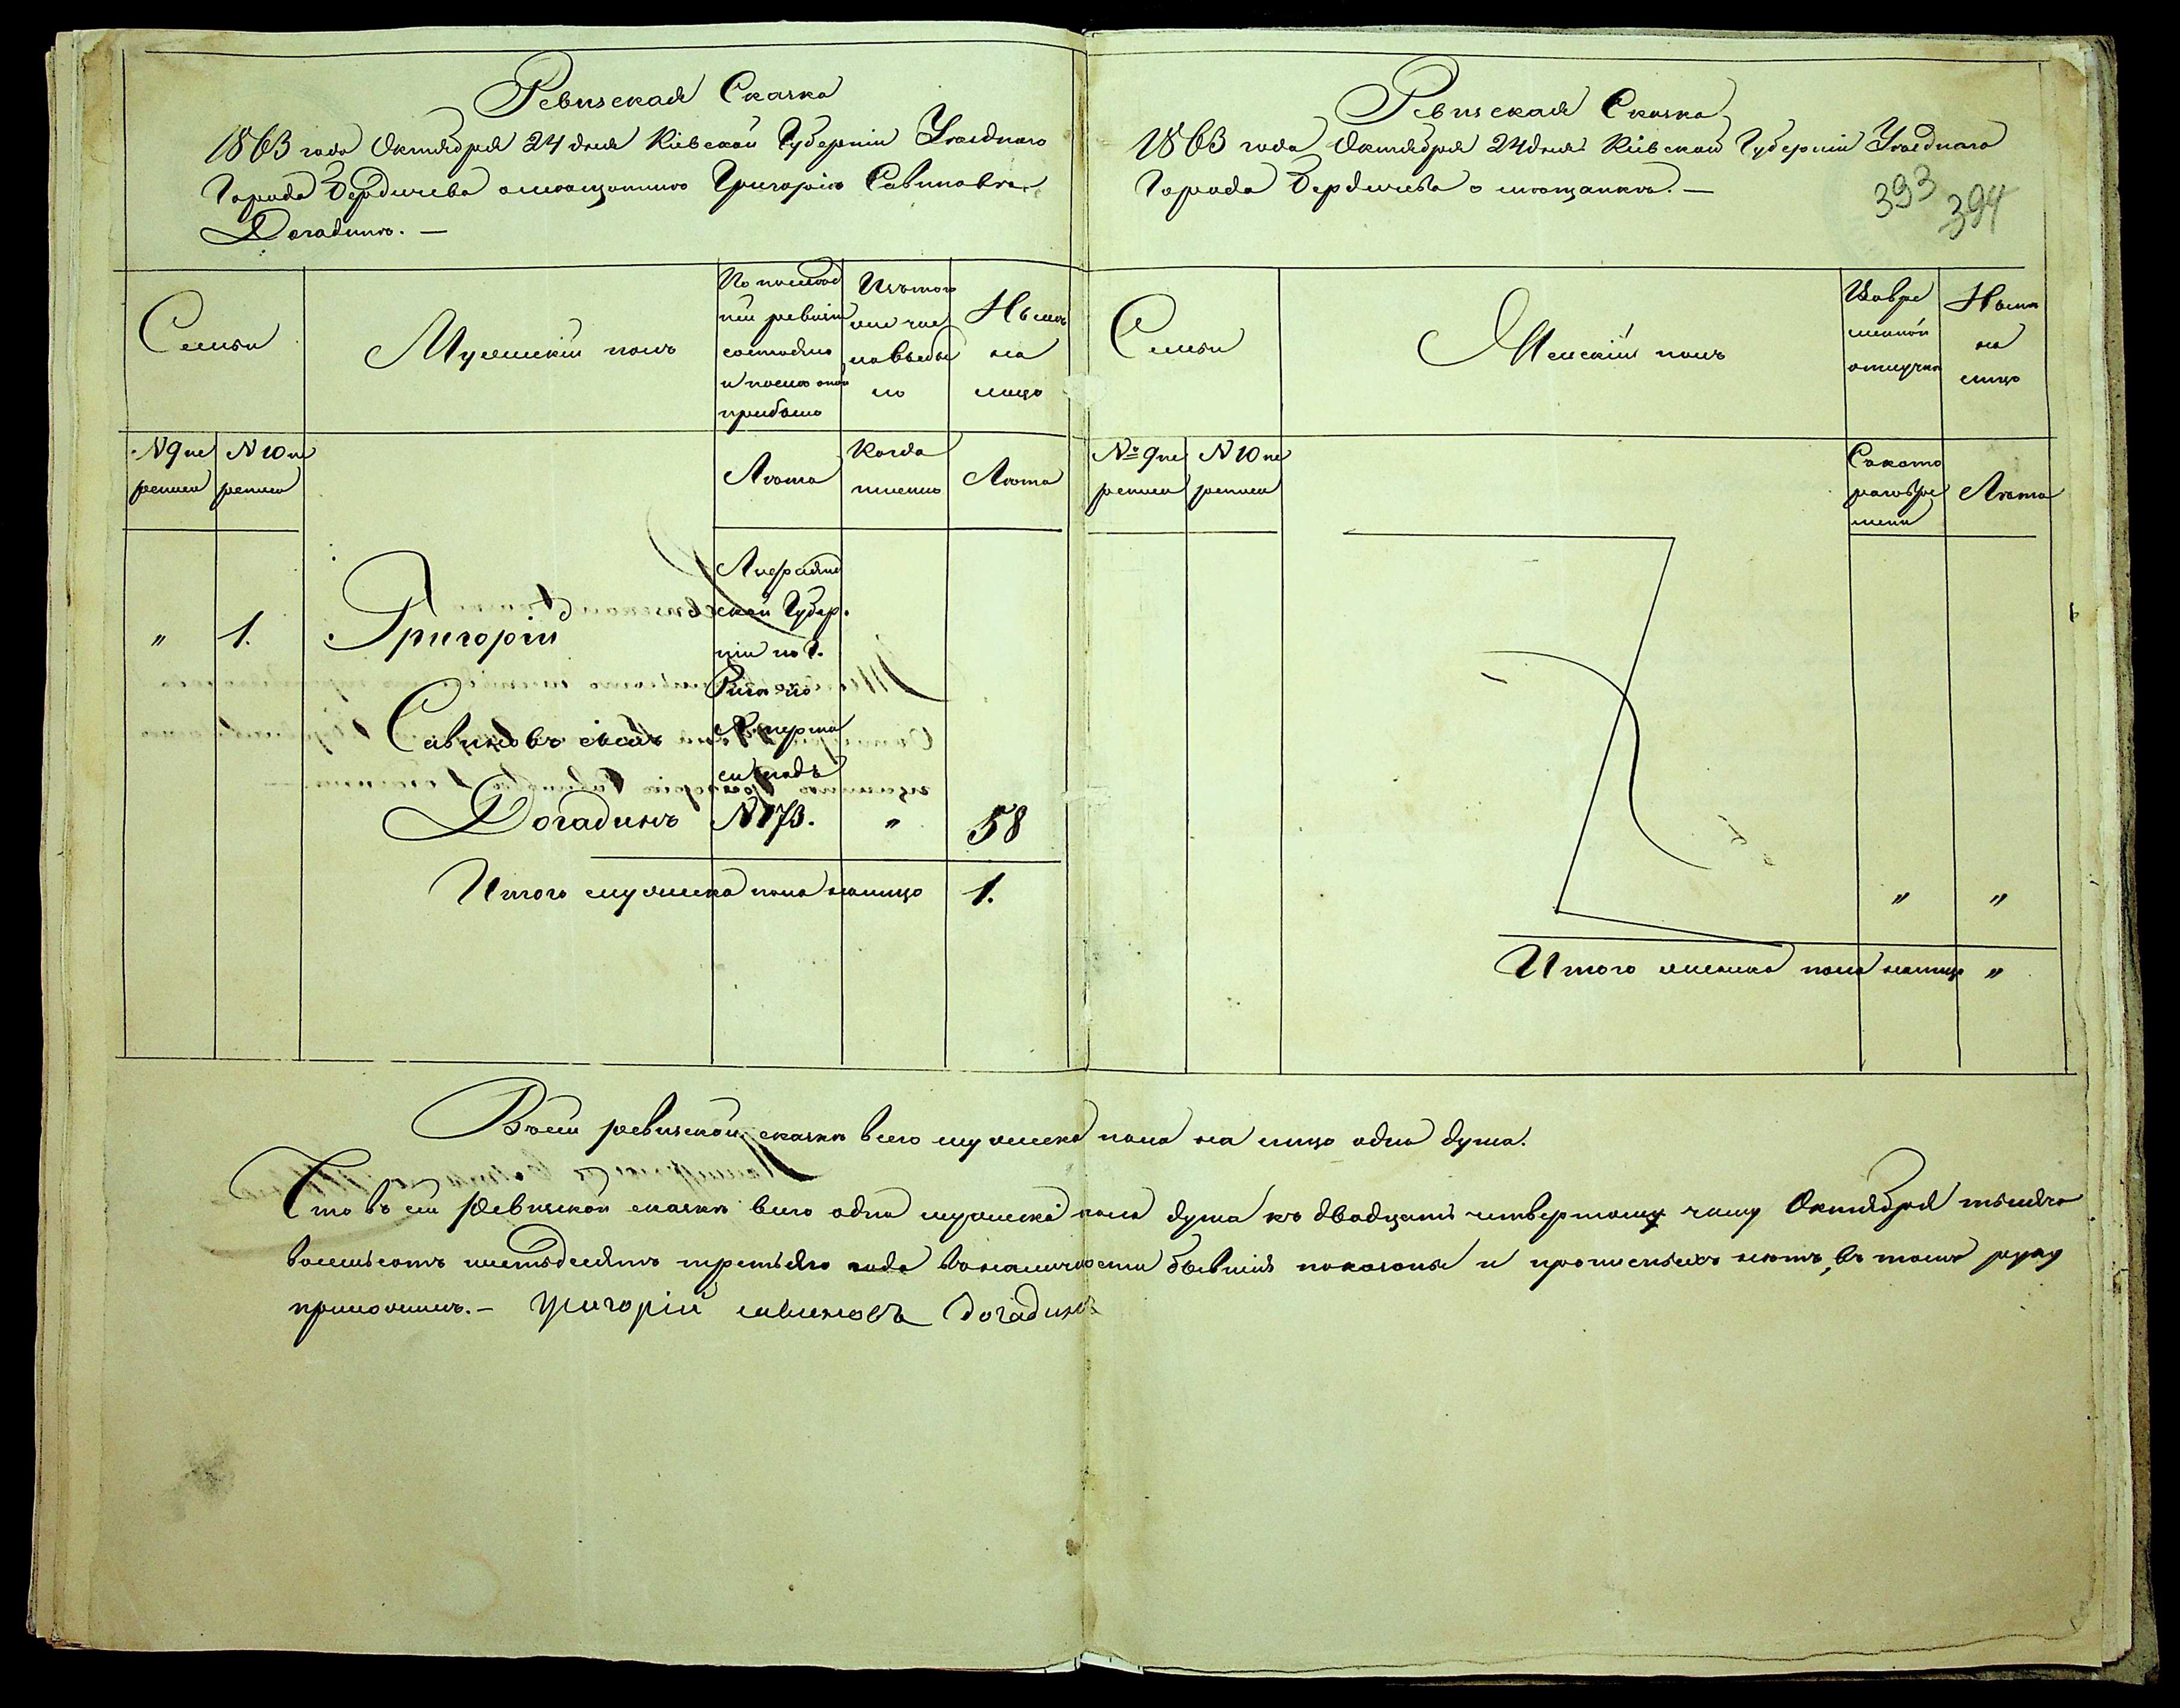 Ревизская Сказка
1863 года Октября 24 дня Кіевской Губерніи Уезднаго
Города Бердичева о мещанине Григоріе Савиновѣ
Догадине. —
Семьи
Мужескій полъ
По послед
ней ревизіи
состояло
и после оной
прибыло
Изъ того
числа
выбы
ло
Ныне
на
лицо
N 9 пе
реписи
N 10 пе
реписи
Лета
Когда
именно
Лета
Лифлянд
ской Губер.
ніи по г.
Риге по
N 173.
„
1.
Григорій
Савиновъ сынъ
Догадинъ
„
58
Итого мужеска пола налицо
1.
Ревизская Сказка
1863 года Октября 24 дня Кіевской Губерніи Уезднаго
Города Бердичева о мещанке. —
393
394
Семьи
Женскій полъ
Во вре
менной
отлучке
Ныне
на
лицо
№ 9 пе
реписи
N 10 пе
реписи
Съ кото
раго вре
мени
Лета
„
„
Итого женска пола налицо
„
Въ сей ревизской сказке всего мужеска пола на лицо одна душа.
Что въ сей Ревизской сказке всего одна мужеска пола душа къ двадцать четвертому числу Октября тысяча
восемьсотъ шестьдесятъ третьяго года въ наличности бывшія показаны и прописныхъ нетъ, въ томъ руку
приложилъ. — Григорій савиновъ догадинъ